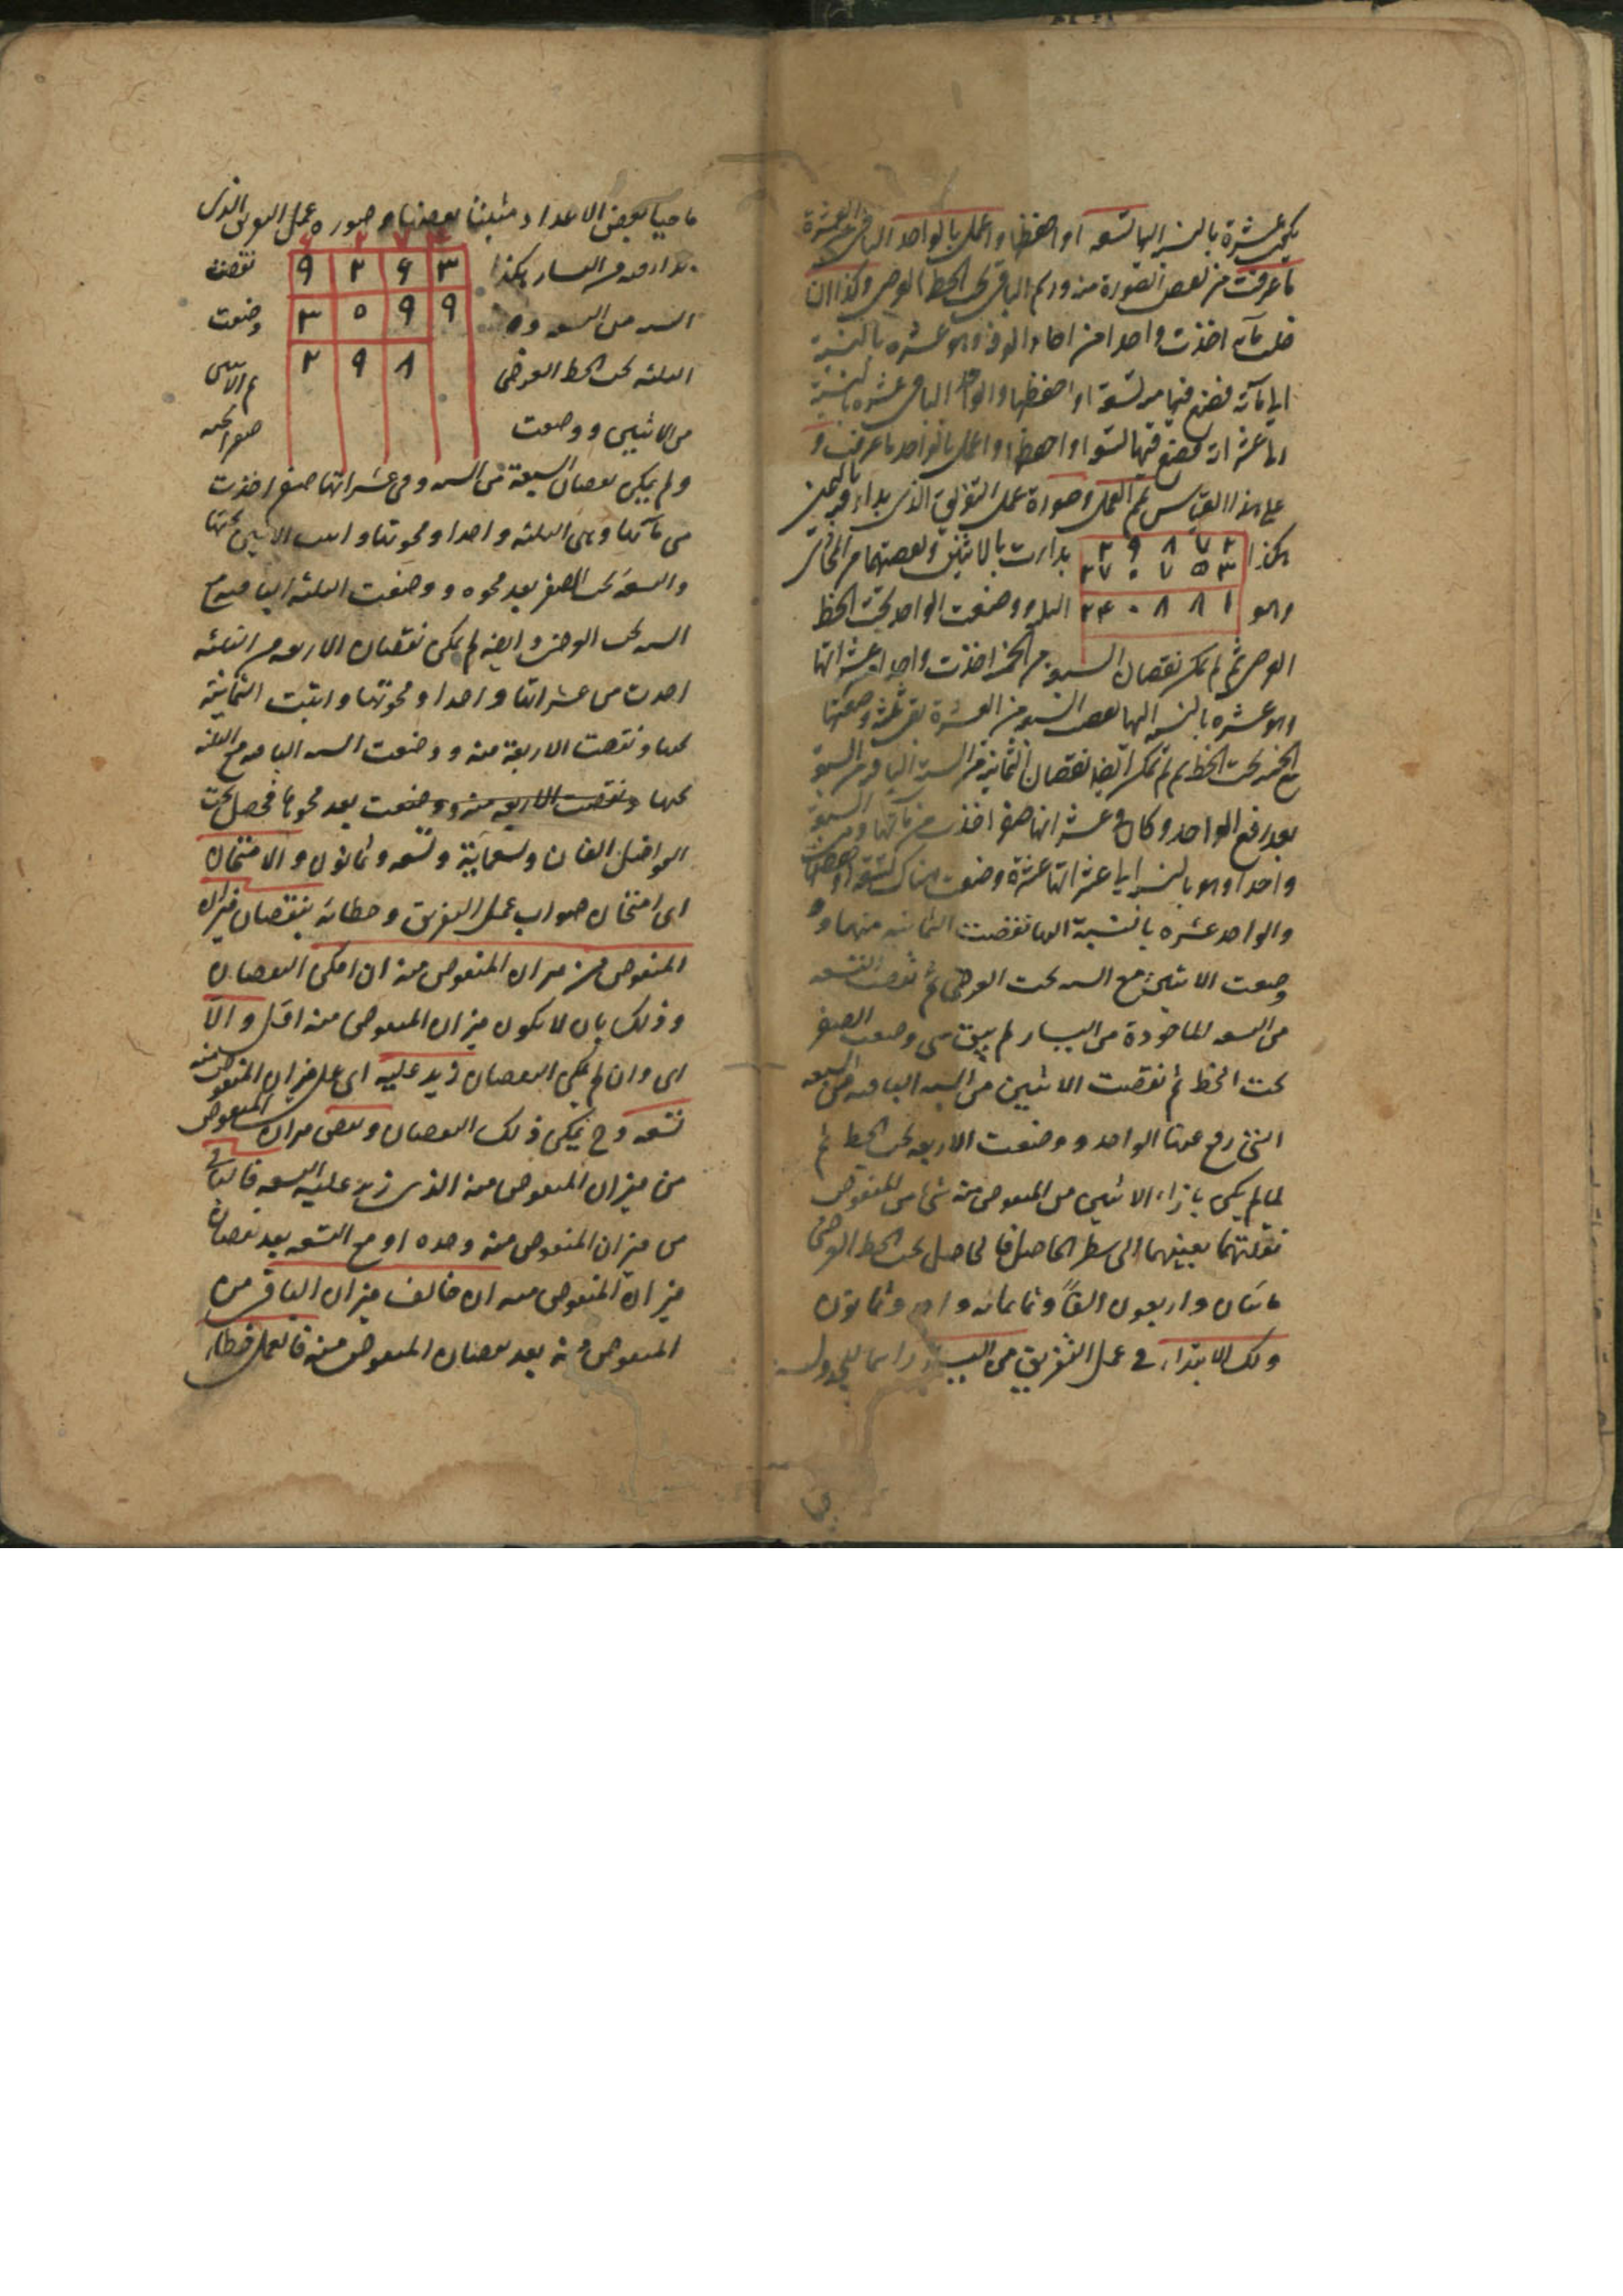 يكن عشرة بالنسبة اليها تسعة او احفظها واعمل بالواحد الباقي من العشرة
ما عرفت من نقص الصورة منه ورسم الباقي تحت الخط العرضي وكذا ان
خلت مآته اخذت واحدا من احاد الوف وهو عشرة بالنسبة
الى مآته فضع فيها تسعة او احفظها والواحد الباقي عشرة بالنسبة
الى عشراته فضع فيها تسعة او احفظها واعمل بالواحد ما عرفت و
على هذا القياس ثم العمل وصورة عمل التفريق الذي بدأ فيه من اليمين
هكذا ٢ ٧ ٨ ٩ ٢ بدأت بالاثنين ونقصتهما من
٣ ٥ ٧ ٠ ٧ ٢
وهو ١ ٨ ٨ ٠ ٤ ٢ الثلثة ووضعت الواحد تحت الخط
العرضي ثم لم يمكن نقصان السبعة من الخمسة اخذت واحدا من عشراتها
وهو عشرة بالنسبة اليها نقصت السبعة من العشرة بقي ثلثة وضعتها
مع الخمسة تحت الخط ثم لم يمكن ايضا نقصان الثمانية من الستة الباقية من السبعة
بعد رفع الواحد وكان في عشراتها صفر اخذت من مآتها وهي السبعة
واحدا وهو بالنسبة الى عشراتها عشرة وضعت هناك التسعة او حفظتها
والواحد عشرة بالنسبة اليها نقصت الثمانية منها و
وضعت الاثنين مع الستة تحت العرضي ثم نقصت التسعة
من التسعة الماخوذة من اليسار لم يبق شي وضعت الصفر
تحت الخط ثم نقصت الاثنين من الستة الباقية من السبعة
التي رفع عنها الواحد ووضعت الاربعة تحت الخط ثم
لما لم يكن بازاء الاثنين من المنقوص منه شئ من المنقوص
نقلتهما بعينهما الى سطر الحاصل فالحاصل تحت الخط العرضي
مائتان واربعون الفا وثمانمائة واحد وثمانون
ولك الابتداء في عمل التفريق من اليسار راسما للجدول
ماحيا لبعض الاعداد مثبتا بعضها وصورة عمل التفريق الذي
بدأ فيه من اليسار هكذا ٣ ٦ ٢ ٩ نقصت
الستة من التسعة و ٩ ٩ ٥ ٣ وضعت
الثلثة تحت الخط العرضي ٨ ٩ ٢ ثم الاثنين
من الاثنين ووضعت صفرا تحته
ولم يمكن نقصان السبعة من الستة وفي عشراتها صفر اخذت
من مآتها وهي الثلثة واحدا ومحوتها واثبت الاثنين تحتها
والتسعة تحت الصفر بعد محوه ووضعت الثلثة الباقية مع
الستة تحت العرضي وايضا لم يمكن نقصان الاربعة من الثلثة
اخذت من عشراتها واحدا ومحوتها واثبت الثمانية
تحتها ونقصت الاربعة منه ووضعت الستة الباقية مع الثلثة
تحتها ونقصت الاربعة منه ووضعت بعد محوها فحصل تحت
الفواضل الفان وتسعمائة وتسعة وثمانون والامتحان
اى امتحان صواب عمل التفريق وخطائه بنقصان ميزان
المنقوص من ميزان المنقوص منه ان امكن النقصان
وذلك بان لا يكون ميزان المنقوص منه اقل والا
اى وان لم يمكن النقصان زيد عليه اى على ميزان المنقوص منه
تسعة وح يمكن ذلك النقصان ونقص ميزان المنقوص
من ميزان المنقوص منه الذى زيد عليه التسعة فالباقي
من ميزان المنقوص منه وحده او مع التسعة بعد نقصان
ميزان المنقوص منه ان خالف ميزان الباقي من
المنقوص منه بعد نقصان المنقوص منه فالعمل خطاء